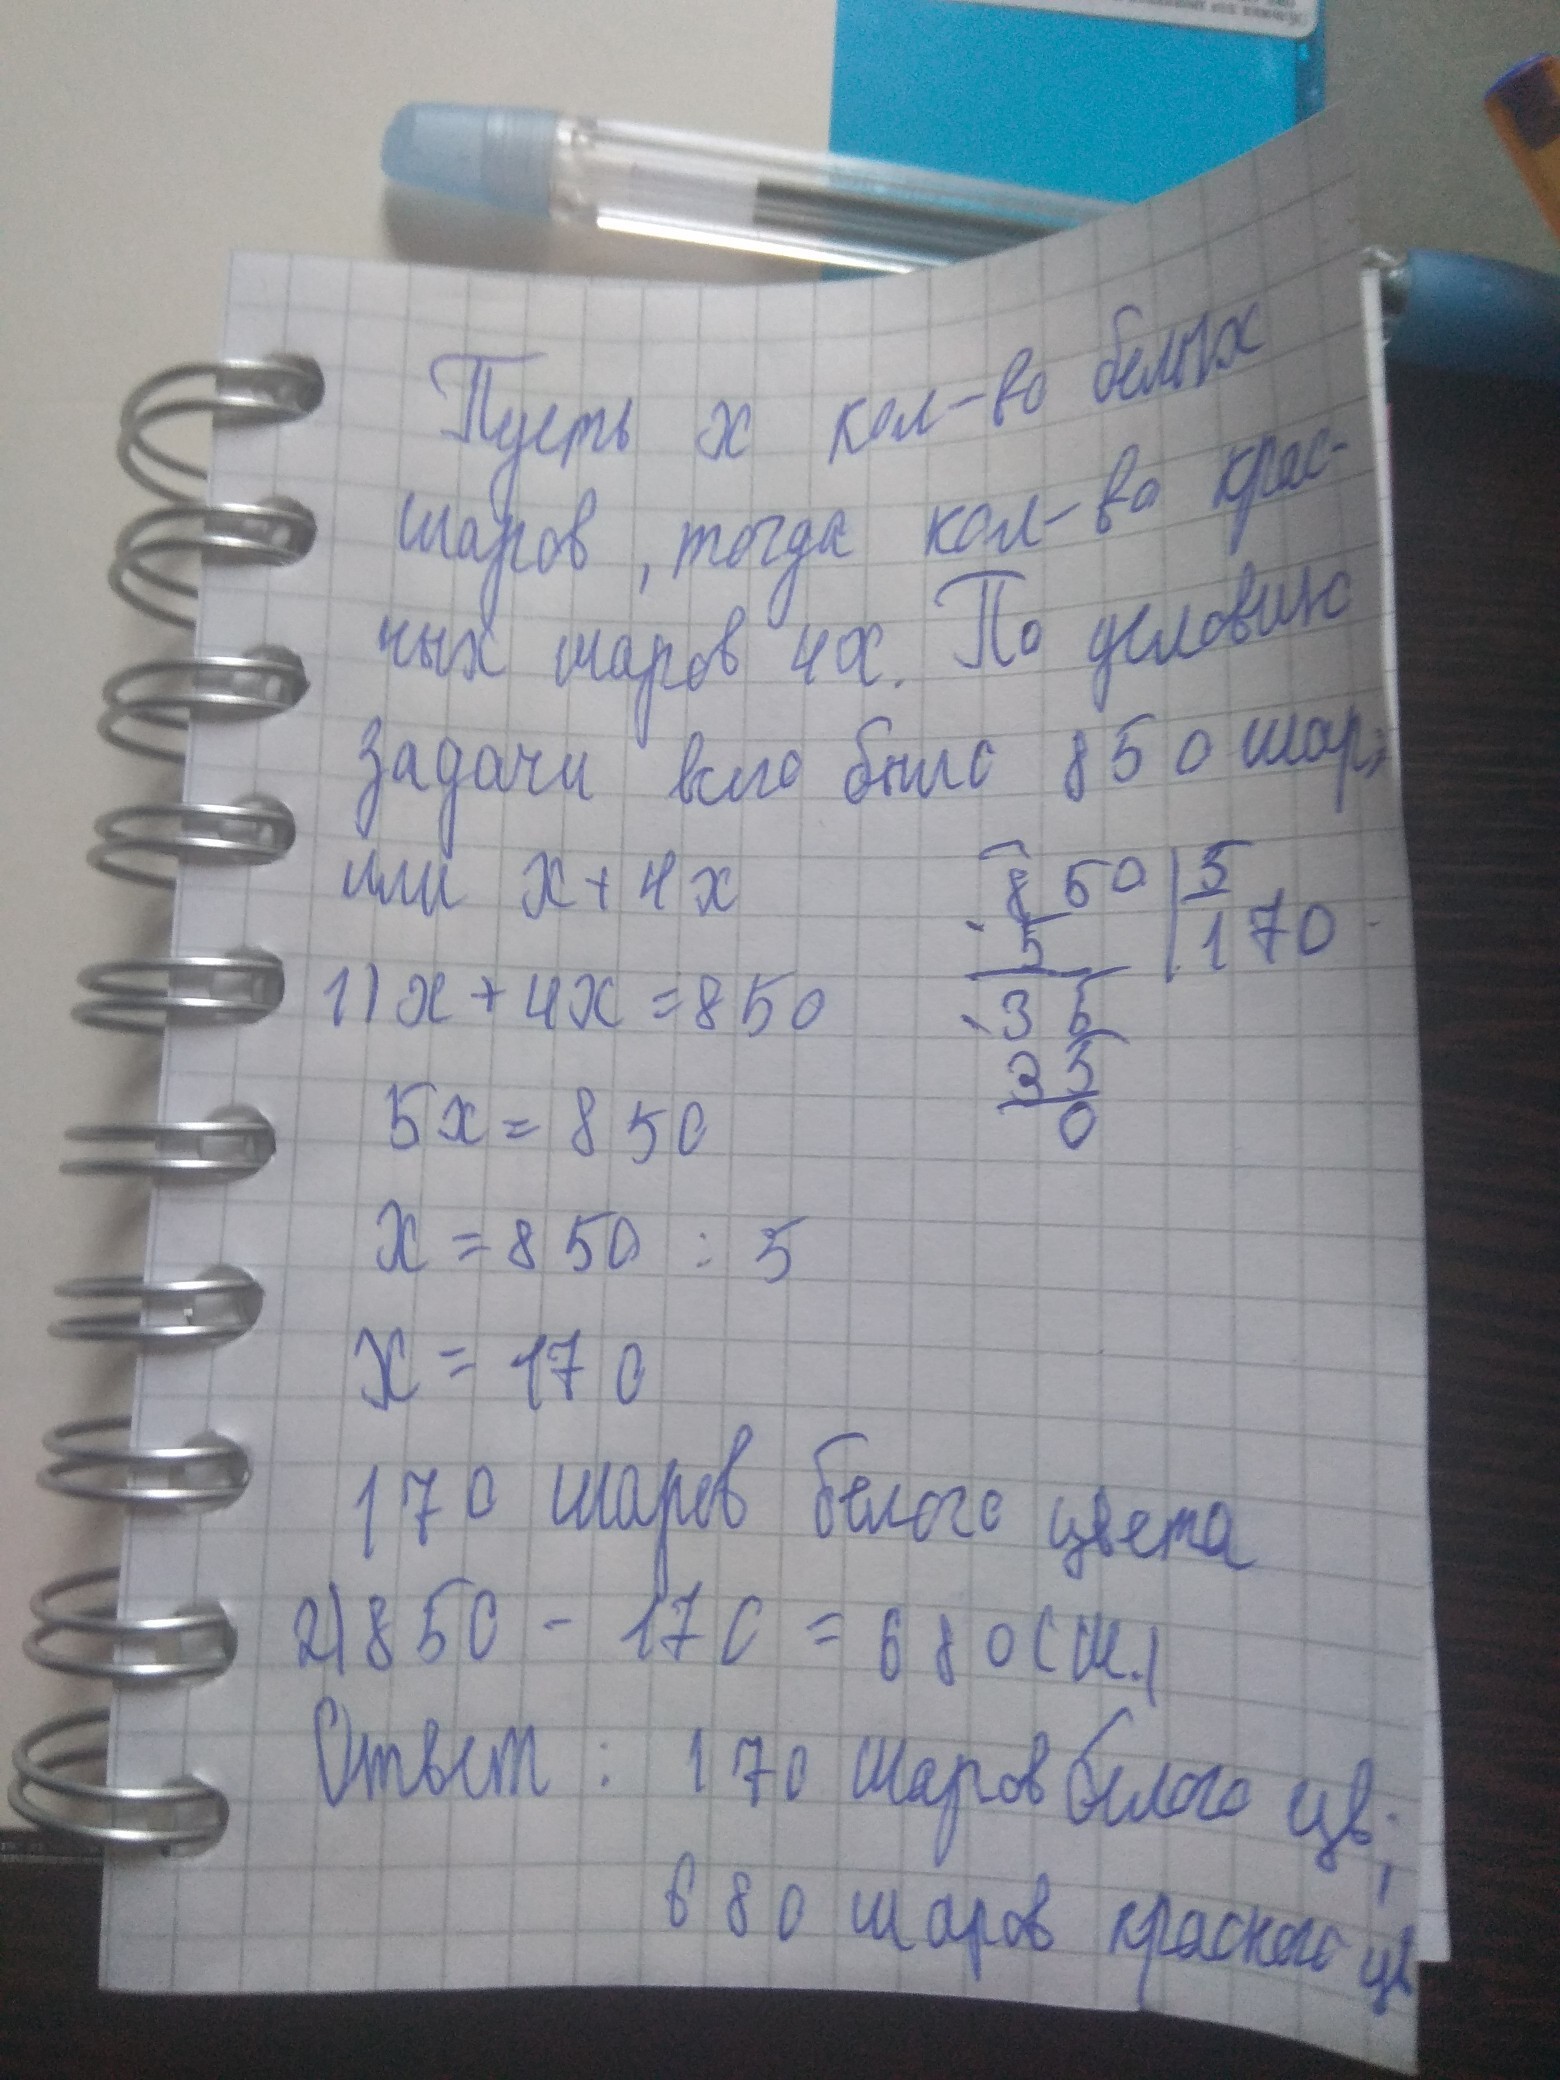 Пусть х кол-во белых
шаров, тогда кол-во крас-
ных шаров 4х. По условию
задачи всего было 850 шар,
или х+4х
850 5
5 170
35
35
0
1) х+4х=850
5х=850
х=850:5
х=170
170 шаров белого цвета
2) 850-170=680(ш.)
Ответ: 170 шаров белого цв;
680 шаров красного цв